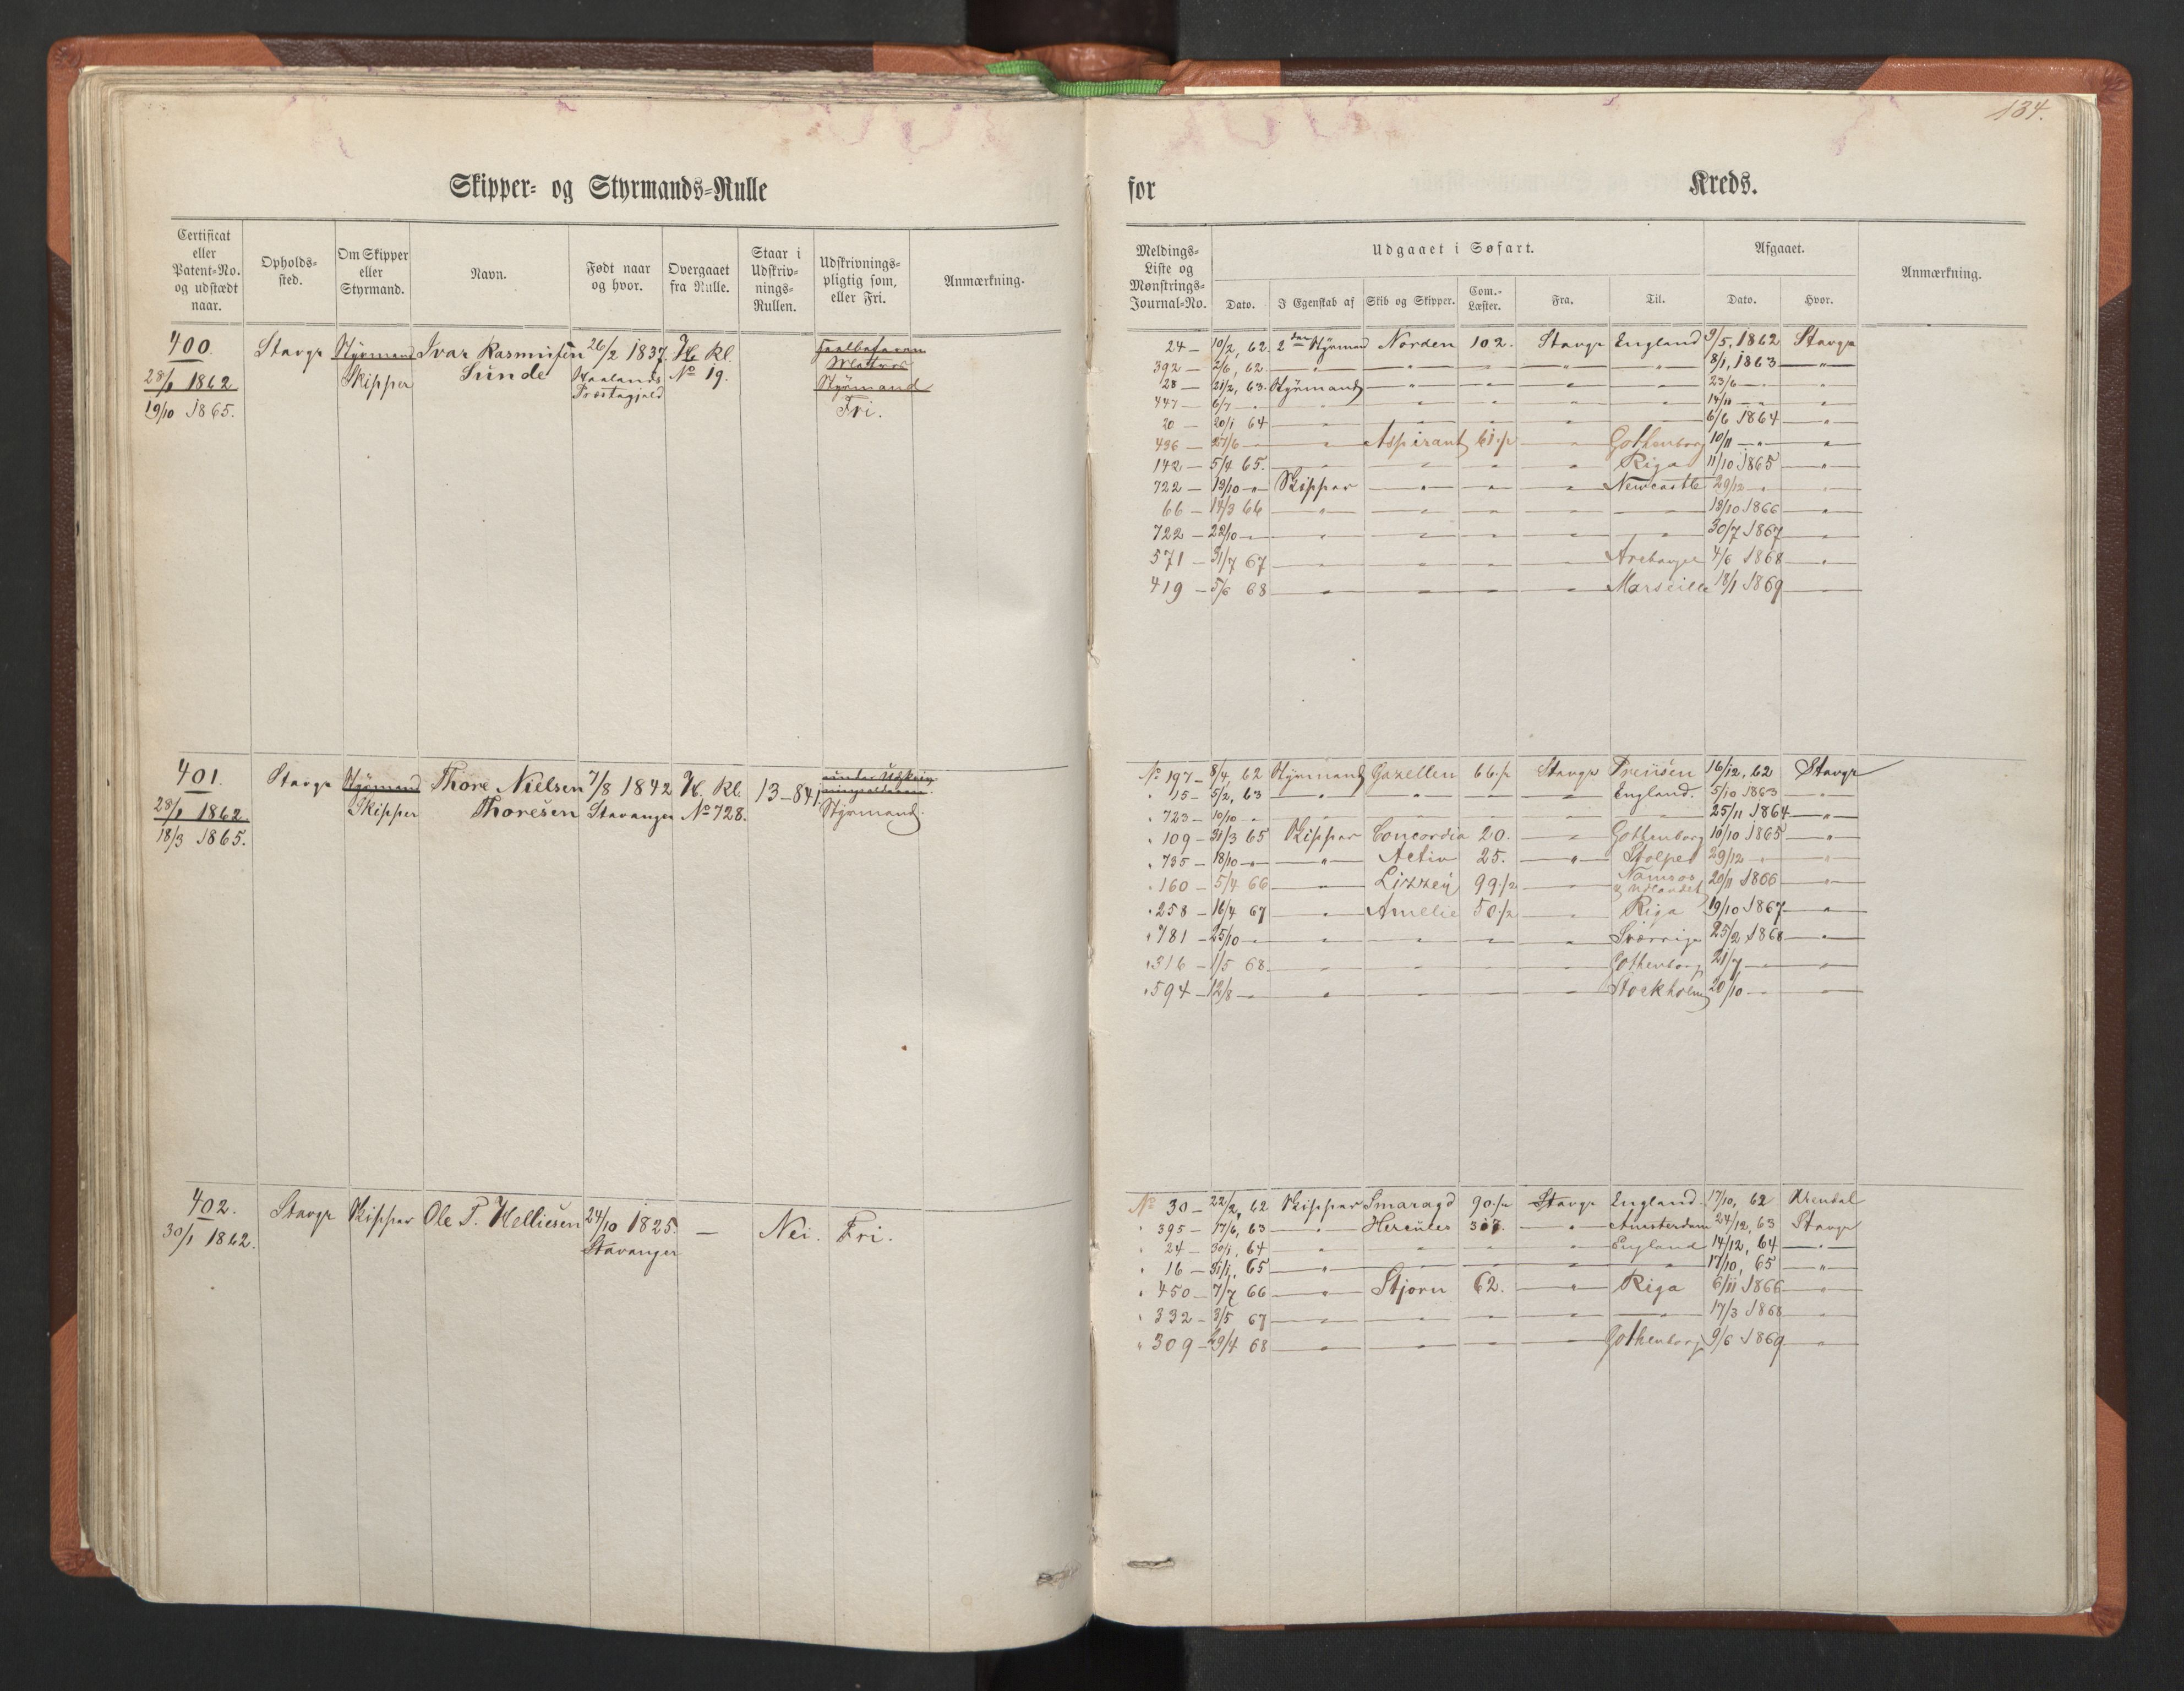 134.
Skipper- og Styrmands-Rulle
for Kreds.
Certificat eller Patent-No. og udstædt naar.
Opholds-sted.
Om Skipper eller Styrmand.
Navn.
Født naar og hvor.
Overgaaet fra Rulle.
Staar i Udskriv-nings-Rullen.
Udskrivnings-pligtig som, eller Fri.
Anmærkning.
Meldings-Liste og Mønstrings-Journal-No.
Udgaaet i Søfart.
Afgaaet.
Anmærkning.
Dato. I Egenskab af Skib og Skipper. Com.-Læster. Fra. Til. Dato. Hvor.
400. Stavgr Styrmand Ivar Rasmussen 26/2 1837. H. Kl.
28/1 1862 Skipper Sunde Haalands No 19. Matros
19/10 1865. Præstegjeld Styrmand
Fri.
24 — 10/2, 62. 2den Styrmand Norden 102. Stavgr England 9/5, 1862 Stavgr
392 — 2/6, 62 — " — " — " — " — " 8/1, 1863 — " —
28 — 21/2, 63. Styrmand — " — " — " — 23/6 — " — "
447 — 6/7 — " — " — " — " — " — 14/11 — " — "
20 — 20/1 64 — " — " — " — " — 6/6 1864 — "
436 — 27/6 — " — " Aspirant 61 1/2 — " Gothenborg 10/11 — " — "
142 — 5/4 65. — " — " — " — " Riga 11/10 1865 — "
722 — 19/10 — " Skipper — " — " — " Newcastle 29/12 — " — "
66 — 14/3 66 — " — " — " — " — 19/10 1866 — "
722 — 22/10 — " — " — " — " — " — " 30/7 1867 — "
571 — 31/7 67 — " — " — " — " 4/6 1868 — "
419 — 5/6 68 — " — " — " — " Marseille 18/1 1869 — "
401. Stavgr Styrmand Thore Nielsen 7/8 1842 H. Kl. 13-841.
28/1 1862. Skipper Thoresen Stavanger No 728. Styrmand.
18/3 1865.
No 197 — 8/4, 62 Styrmand Gazellen 66 1/2 Stavgr Preusen 16/12, 62 Stavgr
" 15 — 5/2, 63 — " — " — " — " England. 5/10 1863 — "
" 723 — 10/10 — " — " — " — " — " — " 25/11 1864 — "
" 109 — 31/3 65 Skipper Concordia 20. — " Gothenborg 10/10 1865 — "
" 735 — 18/10 — " — " Activ 25. — " Stolpe 29/12 — " — "
" 160 — 5/4 66 — " Lizzey 99 1/2 — " Namsos & Udlandet 20/11 1866 — "
" 258 — 16/4 67 — " Amelie 50 1/2 — " Riga 19/10 1867 — "
" 781 — 25/10 — " — " — " — " — " Sverrige 25/2 1868 — "
" 316 — 1/5 68. — " — " — " — " Gothenborg 21/7 — " — "
" 594 — 12/8 — " — " — " — " — " Stockholm 20/10 — " — "
402. Stavgr Skipper Ole T. Helliesen 24/10 1825. — Nei. Fri.
30/1 1862. Stavanger
No 30 — 22/2, 62 Skipper Smaragd 90 1/2 Stavgr England. 17/10, 62 Arendal
" 395 — 17/6, 63 — " Hercules 37. — " Amsterdam 24/12, 63 Stavgr
" 24 — 30/1, 64 — " — " — " — " England 14/12, 64 — "
" 16 — 31/1, 65 — " — " — " — " — " 17/10, 65 — "
" 450 — 7/7 66 — " Stjorn 62. — " Riga 6/11 1866 — "
" 332 — 3/5 67 — " — " — " — " — " 17/3 1868 — "
" 309 — 29/4 68 — " — " — " — " Gothenborg 9/6 1869 — "